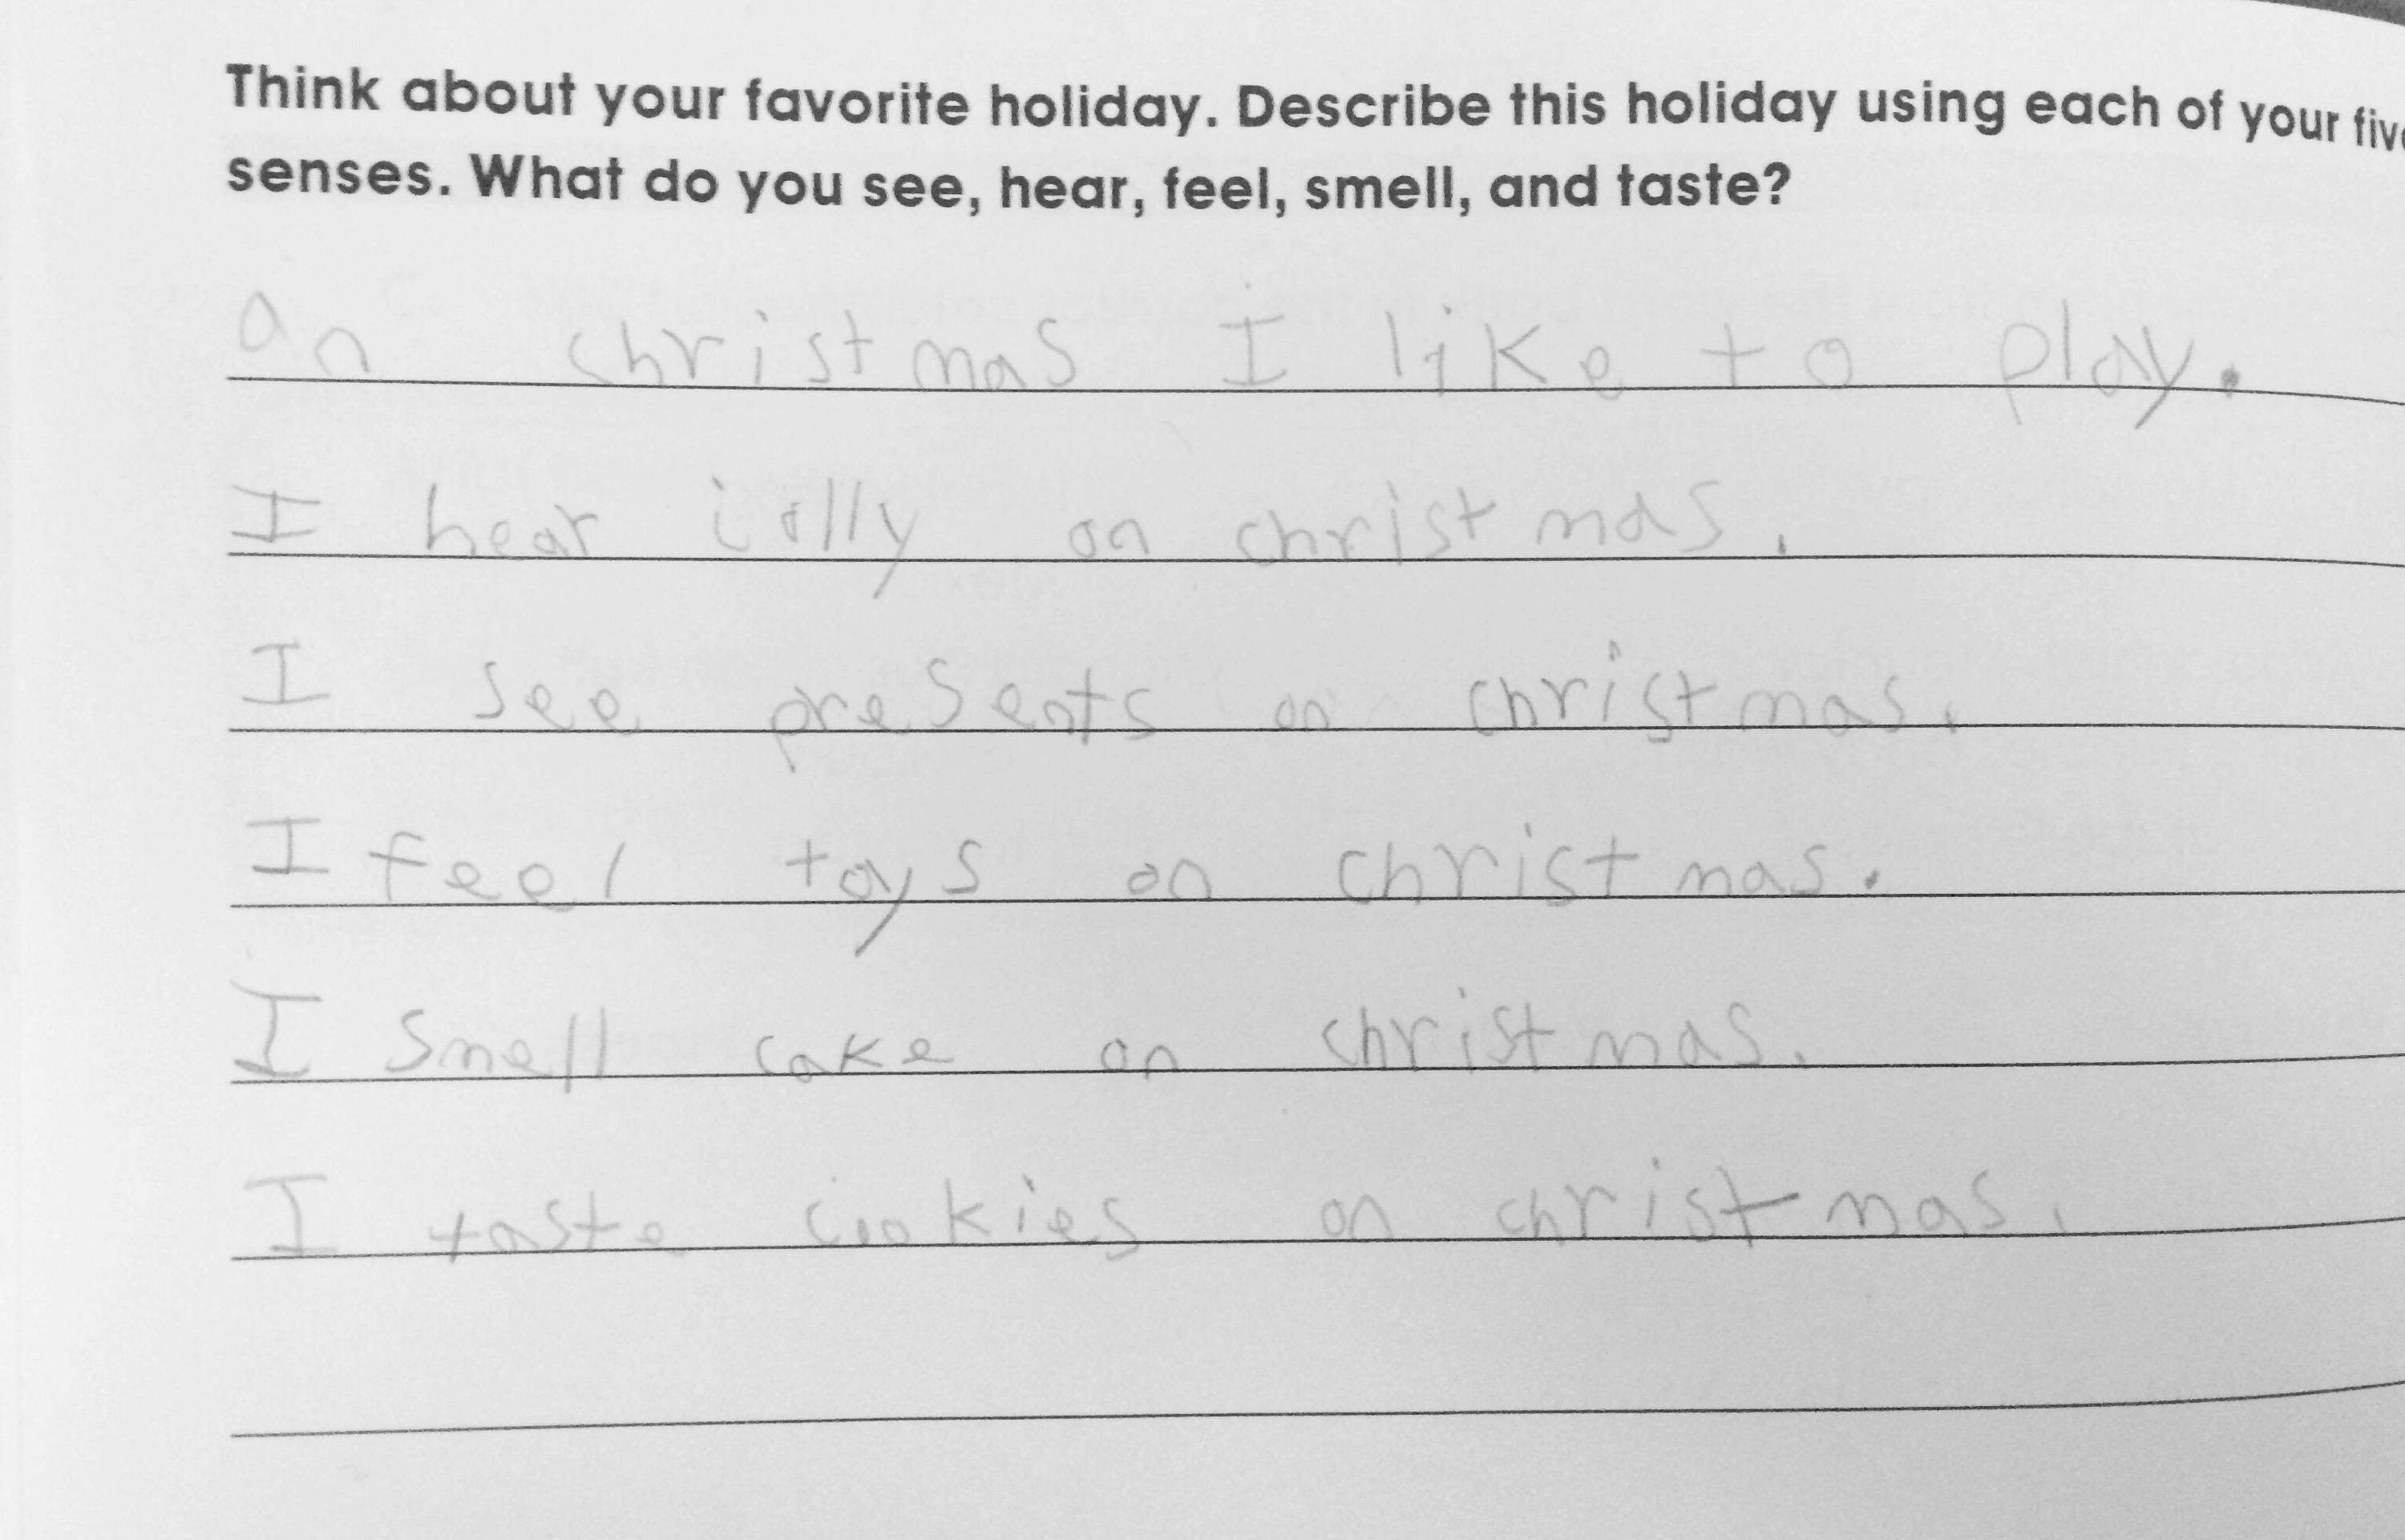 Think about your favorite holiday. Describe this holiday using each of your
senses. What do you see, hear, feel, smell, and taste?
on christmas I like to play.
I hear jolly on christmas.
I see presents on christmas.
I feel toys on christmas.
I smell cake on christmas.
I taste cookies on christmas.